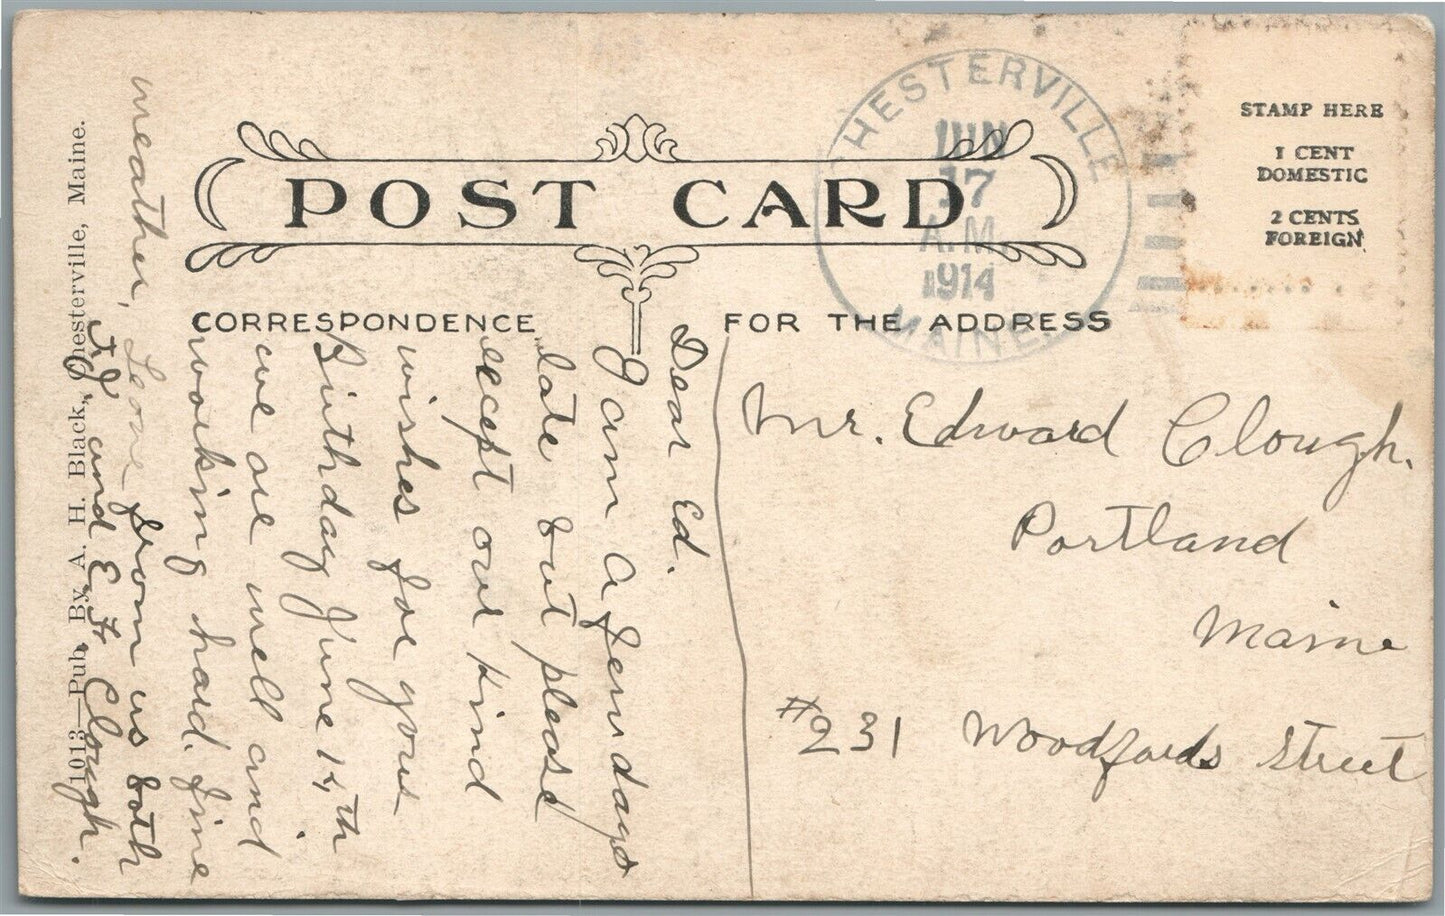 POST CARD
CHESTERVILLE
JUN
17
A.M.
1914
MAINE
STAMP HERE
1 CENT
DOMESTIC
2 CENTS
FOREIGN
CORRESPONDENCE
FOR THE ADDRESS
Dear Ed.
I am a few days
late but please
except our kind
wishes for your
Birthday June 14th.
we are well and
working hard. fine
weather,
Love from us both
and E. F. Clough.
1013—Pub. By A. H. Black, Chesterville, Maine.
Mr. Edward Clough.
Portland
Maine
#231 Woodfords Street